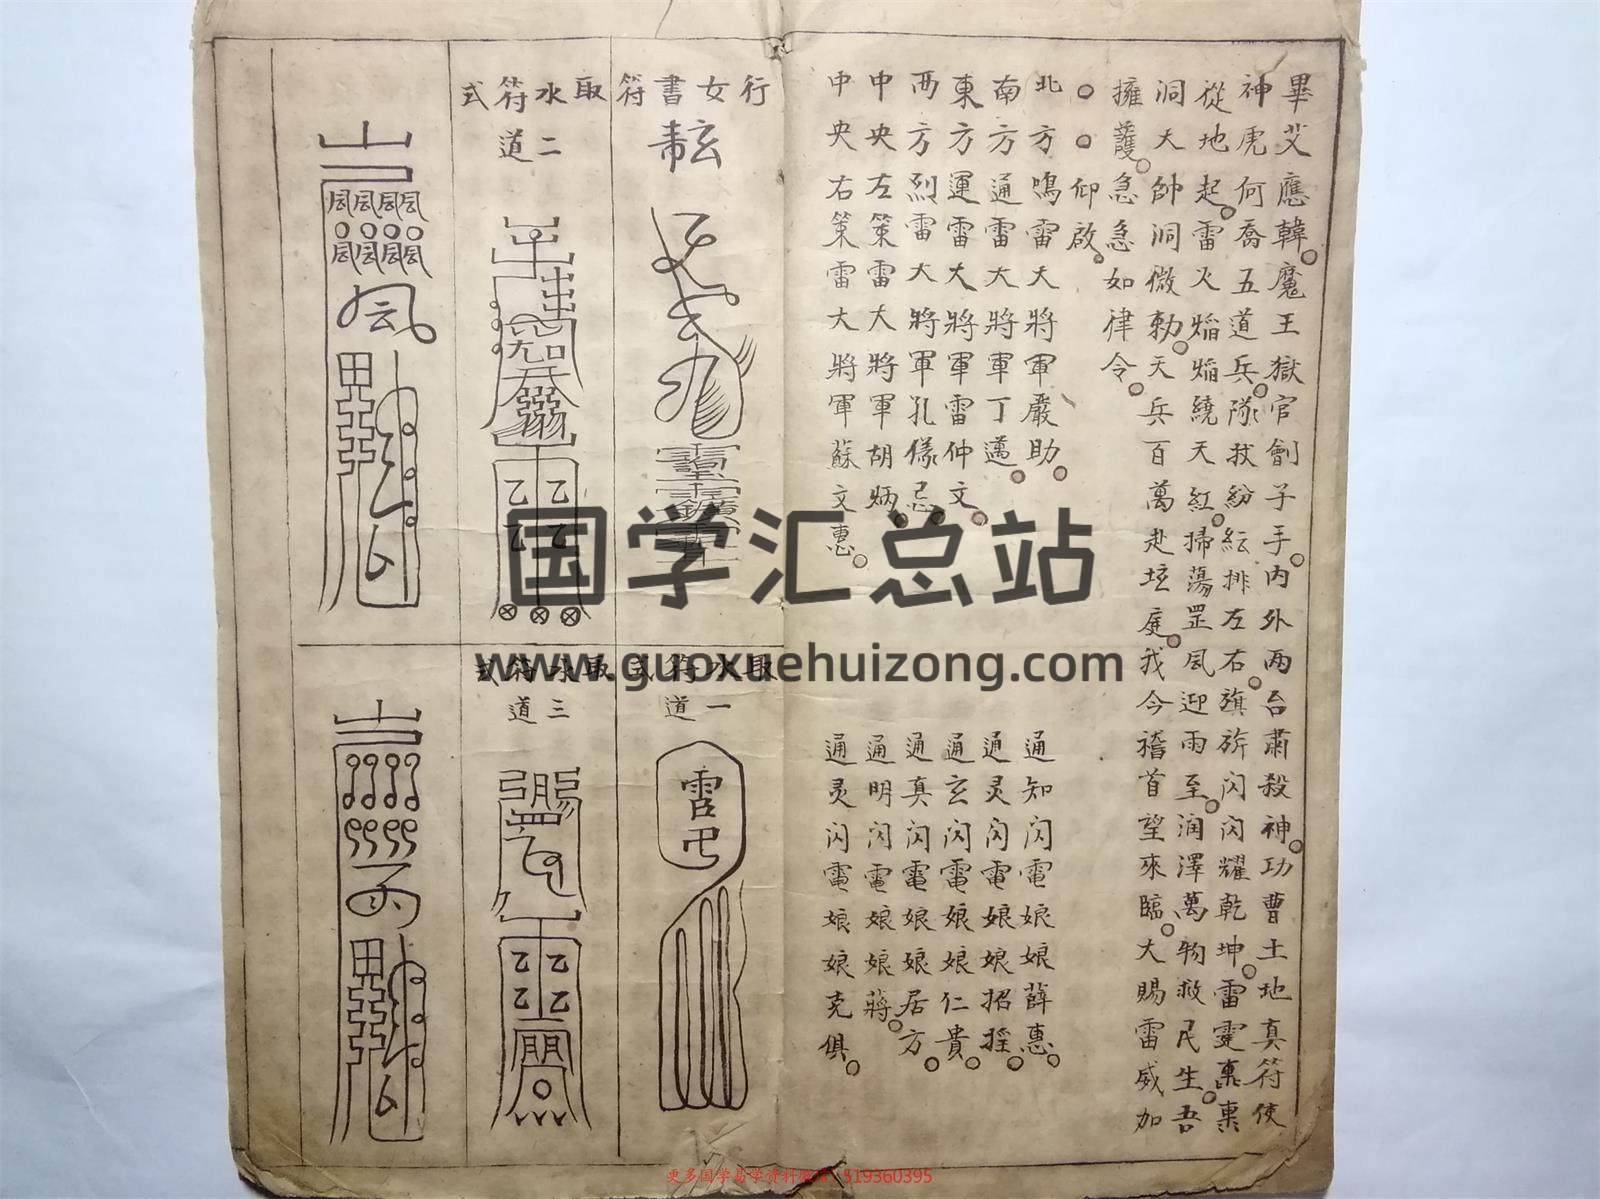 畢艾應韓魔王獄官劊子手内外两台肅殺神功曹土地真符使
神虎何喬五道兵隊扶紛紜排左右旗旂閃閃耀乾坤雷霆
從地起雷火熖熖繞天紅掃蕩罡風迎雨至润澤萬物救民生吾
洞大帥洞微勅天兵百萬赴坛庭我今稽首望來臨大賜雷威加
擁護急急如律令
仰啟
北方鳴雷大將軍嚴助 通知闪電娘娘薛惠
南方通雷大將軍丁邁 通灵闪電娘娘招
東方運雷大將軍雷仲文 通玄闪電娘娘仁貴
西方烈雷大將軍孔儀忌 通真闪電娘娘居方
中央左策雷大將軍胡炳 通明闪電娘娘蔣
中央右策雷大將軍蘇文惠 通灵闪電娘娘克俱
行女書符
取水符式
一道
取水符式
二道
取水符式
三道
国学汇总站
www.guoxuehuizong.com
更多国学易学资料 819360395